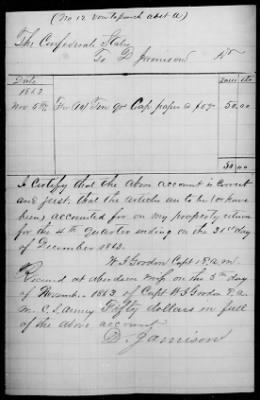 The Confederate States
To D Jamison Dr
Date
1863
Nov 5th For (10) Ten qr Cap paper a 5.00 50.00
50.00
I certify that the above account is correct
and just: that the articles are to be (or have
been) accounted for on my property return
for the 4th quarter ending on the 31st day
of December 1863.
W J Gordon Capt & A.Q.M.
Received at Aberdeen Miss on the 5th day
of November 1863 of Capt W J Gordon A.Q.
M. C.S. Army Fifty dollars in full
of the above account
D. Jamison